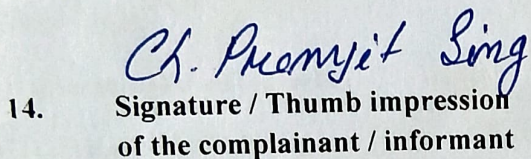 Ch. Premjit Sing
14. Signature / Thumb impression
of the complainant / informant